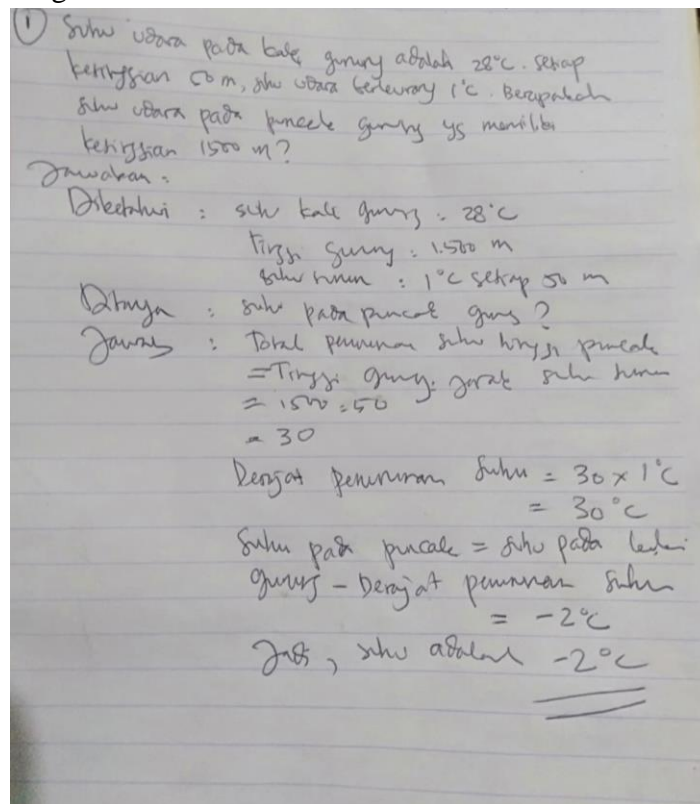 ① Suhu udara pada kaki gunung adalah 28°C. Setiap
ketinggian 50 m, suhu udara berkurang 1°C. Berapakah
suhu udara pada puncak gunung yg memiliki
ketinggian 1500 m?
Jawaban :
Diketahui : suhu kaki gunung : 28°C
Tinggi gunung : 1.500 m
suhu turun : 1°C setiap 50 m
Ditanya : suhu pada puncak gunung ?
Jawab : Total penurunan suhu hingga puncak
= Tinggi gunung : jarak suhu turun
= 1500 : 50
= 30
Derajat penurunan suhu = 30 x 1°C
= 30°C
Suhu pada puncak = suhu pada kaki
gunung - Derajat penurunan suhu
= -2°C
Jadi, suhu adalah -2°C